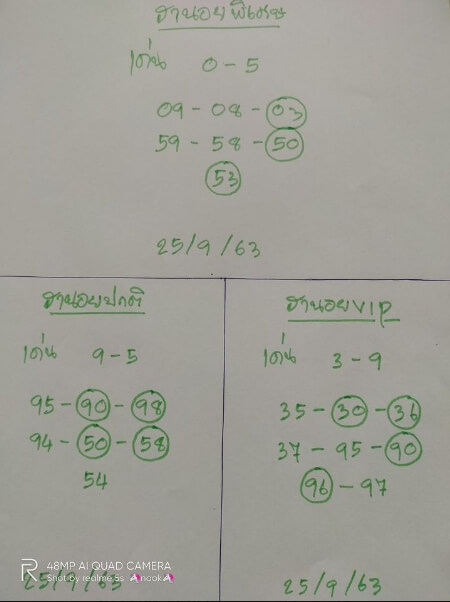 ฮานอยพิเศษ
เด่น 0-5
09-08-03
59-58-50
53
25/9/63
ฮานอยปกติ
เด่น 9-5
95-90-98
94-50-58
54
25/9/63
ฮานอยVIP
เด่น 3-9
35-30-36
37-95-90
96-97
25/9/63
48MP AI QUAD CAMERA
Shot by realme 5s ♠ncok♠